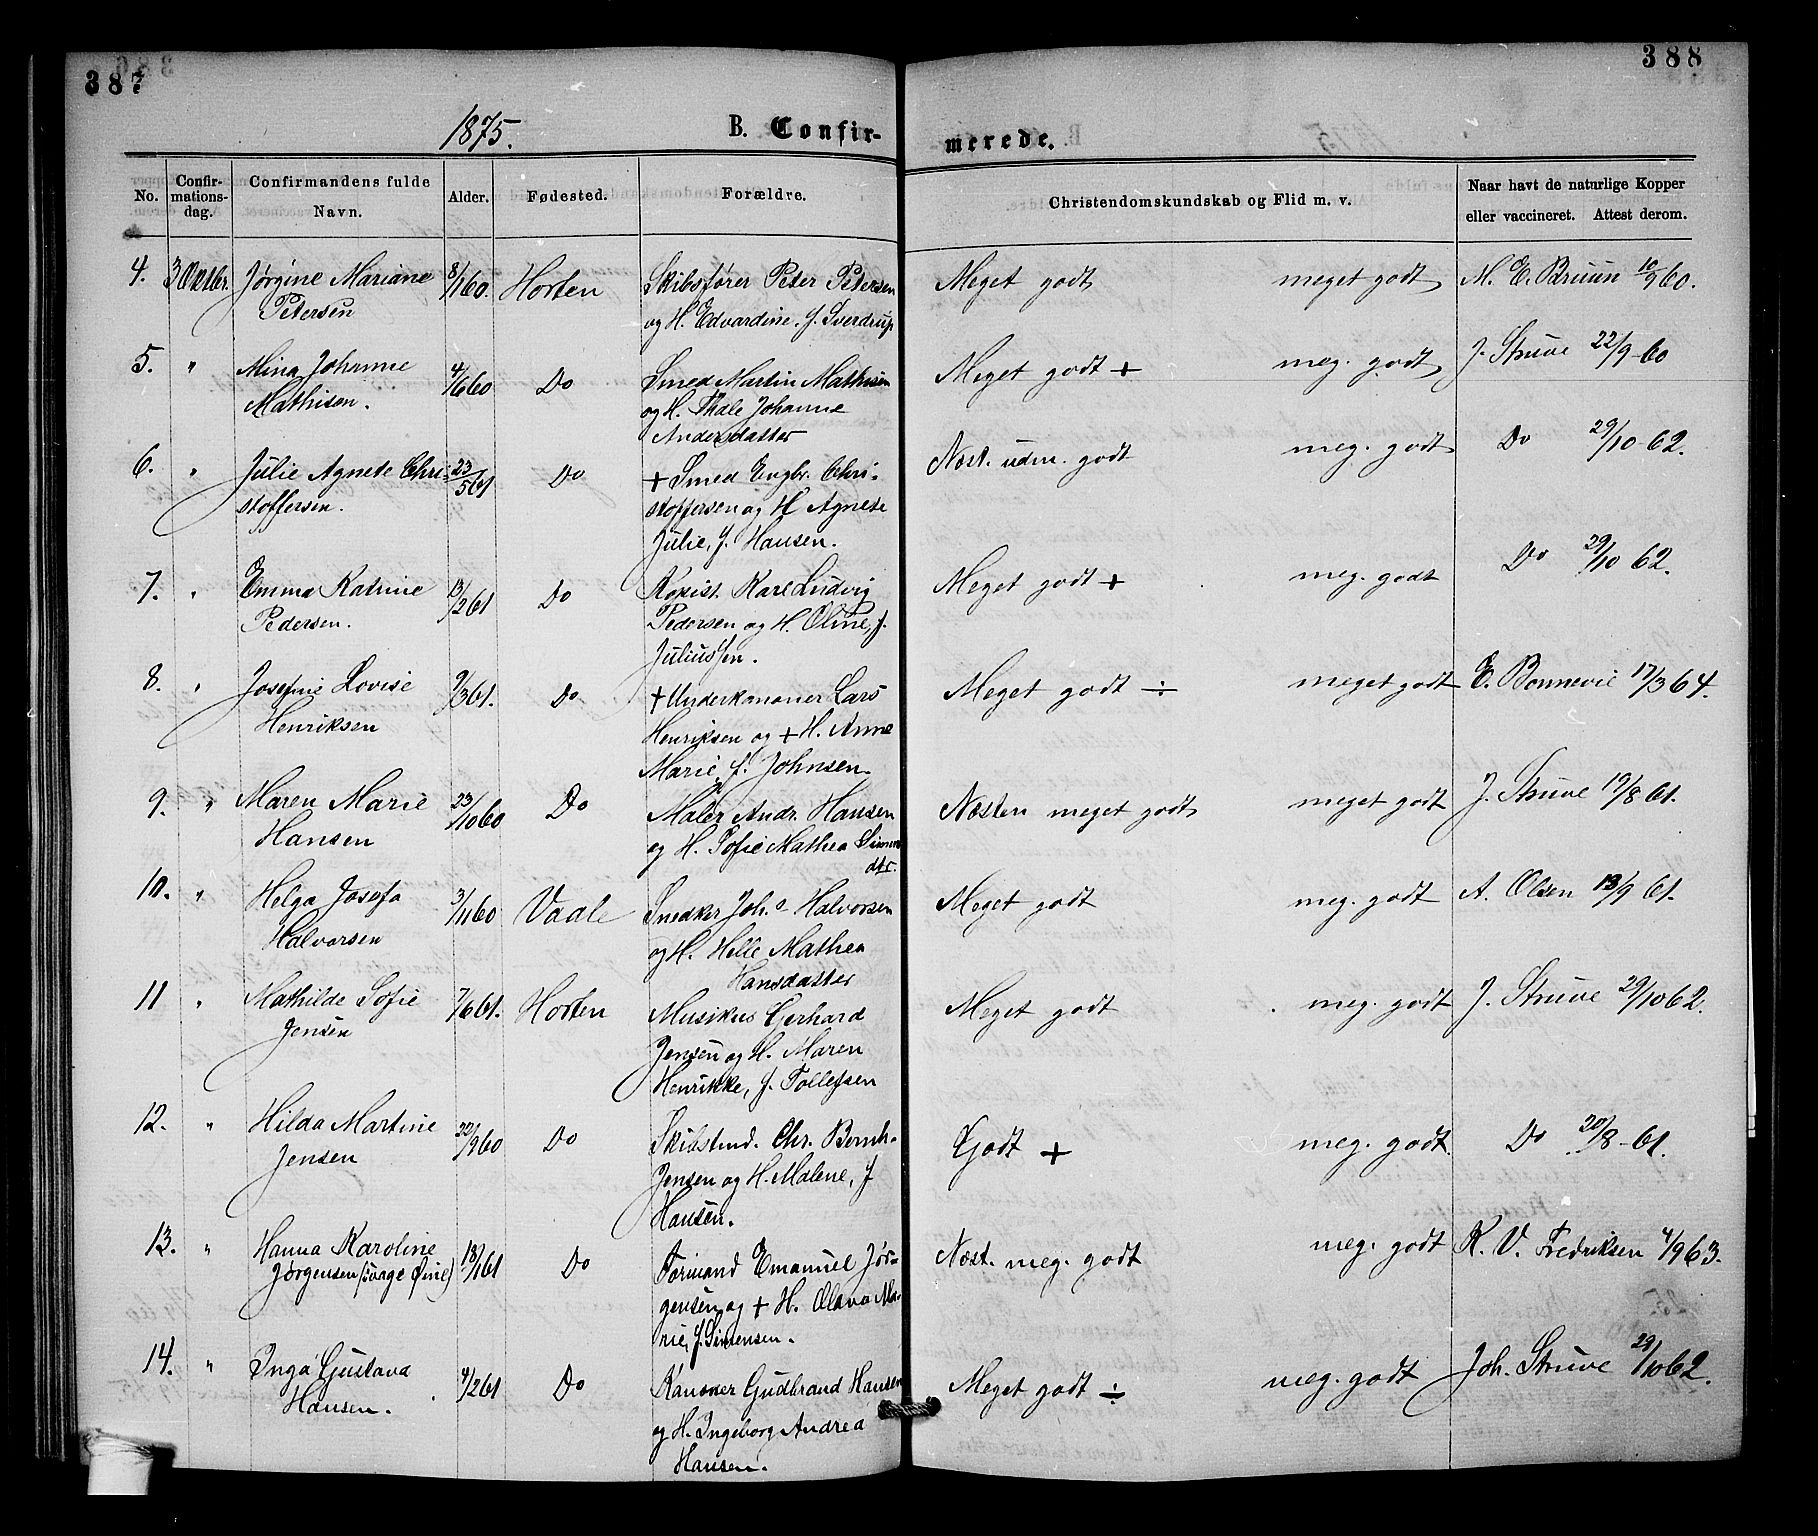 387
388
1875.
B. Confir-
merede.
No.
Confir-
mations-
dag.
Confirmandens fulde
Navn.
Alder.
Fødested.
Forældre.
Christendomskundskab og Flid m. v.
Naar havt de naturlige Kopper
eller vaccineret. Attest derom.
4. 3 Oktbr. Jørgine Mariane 8/1 60. Horten Skibsfører Peter Petersen Meget godt meget godt M. E. Bruun 10/9 60.
Petersen og H. Edvardine, f. Sverdrup
5. " Mina Johanne 4/6 60 Do Smed Martin Mathisen Meget godt + meg. godt J. Struve 22/9-60
Mathisen. og H. Thale Johanne
Andersdatter
6. " Julie Agnete Chri- 23/5 61 Do + Smed Engbr. Chri- Næst. udm. godt meg. godt Do 29/10-62.
stoffersen. stoffersen og H Agnete
Julie, f. Hansen.
7. " Emma Katrine 13/2 61 Do Kopist. Karl Ludvig Meget godt + meg. godt Do 29/10 62.
Pedersen. Pedersen og H. Oline, f.
Juliussen.
8. " Josefine Lovise 9/3 61. Do + Underkanoner Lars Meget godt ÷ meget godt E. Bonnevie 17/3 64.
Henriksen Henriksen og + H. Anne
Marie, f. Johnsen.
9. " Maren Marie 23/10 60 Do Maler Andr. Hansen Næsten meget godt meget godt J. Struve 19/8 61.
Hansen og H. Sofie Mathea Simens
dtr.
10. " Helga Josefa 3/11 60 Vaale Snedker Joh.s Halvorsen Meget godt meg. godt A. Olsen 13/9 61.
Halvorsen og H. Helle Mathea
Hansdatter
11 " Mathilde Sofie 7/6 61. Horten Musikus Gerhard Meget godt meg. godt J. Struve 29/10 62.
Jensen Jensen og H. Maren
Henrikke, f. Tollefsen
12. " Hilda Martine 22/9 60 Do Skibstmd. Chr. Bernh. Godt + meg. godt Do 20/8-61.
Jensen Jensen og H. Malene, f
Hansen.
13. " Hanna Karoline 18/1 61 Do Formand Emanuel Jør- Næst. meg. godt meg. godt K. V. Fredriksen 4/9 63.
Jørgensen (svage Øine) gensen og + H. Olava Ma-
rie, f. Simensen.
14. " Inga Gustava 4/2 61 Do Kanoner Gudbrand Hansen Meget godt ÷ meg. godt Joh. Struve 29/10 62.
Hansen. og H. Ingeborg Andrea
Hansen.